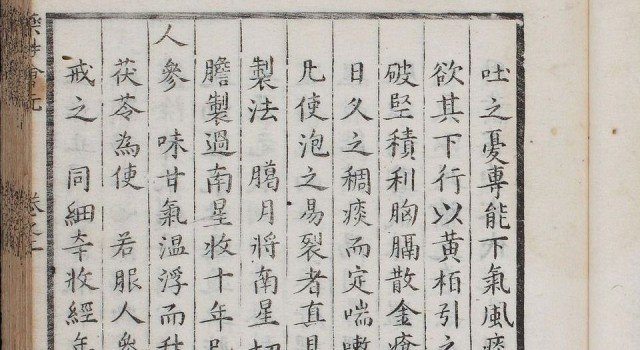 吐之憂專能下氣風痰
欲其下行以黃栢引之
破堅積利胸膈散金瘡
日久之稠痰而定喘嗽
凡使泡之易裂者真
製法 臈月將南星切
膽製過南星收十年
人參 味甘氣温浮而
茯苓為使 若服人參
戒之 同細辛收經年
卷之二